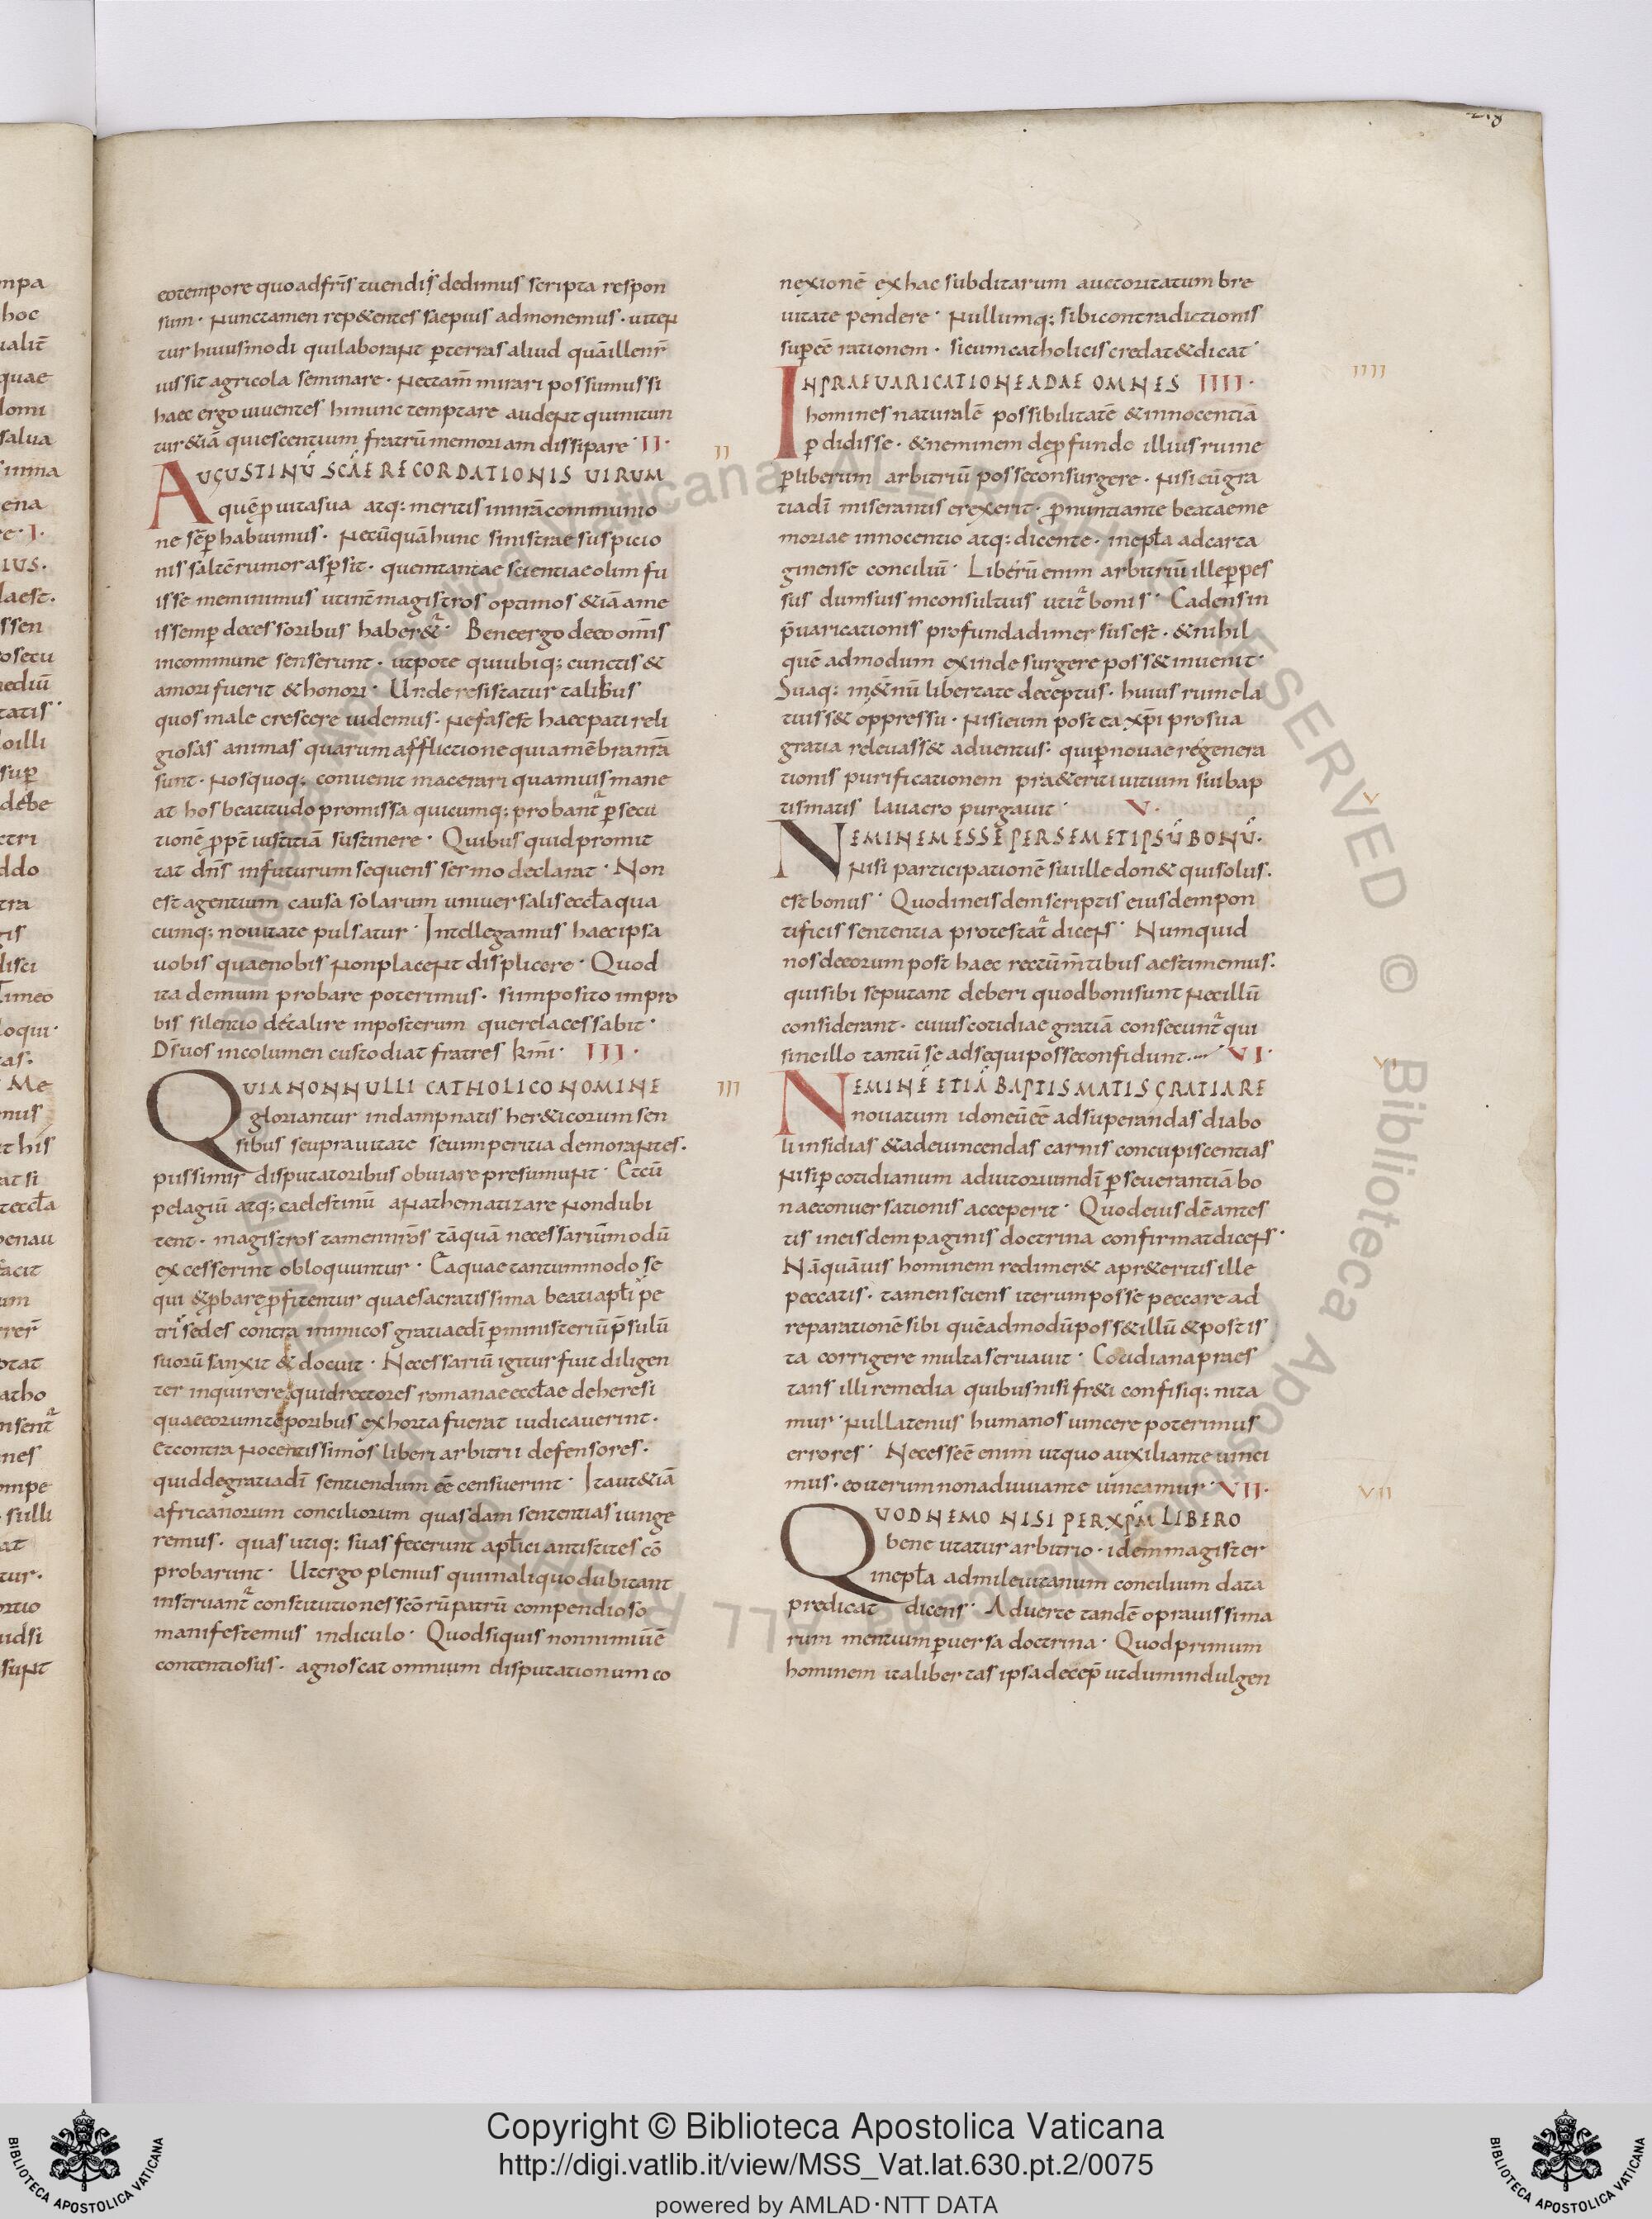 218
eo tempore quo ad fr̄is tuendis dedimus scripta respon
sum · Nunc tamen rep&entes saepius admonemus · uiteN
tur huiusmodi qui laboraNt p̄ terras aliud quā ille nr̄
iussit agricola seminare · Nec tam̄ mirari possumus si
haec ergo uiuentes hi nunc temptare audeNt qui nitun
tur &iā quiescentium fratrū memoriam dissipare · II ·
AUGUSTINŪ SCĀE RECORDATIONIS UIRUM
quē p̄ uita sua atq; meritis in nr̄a communio
ne sēp̄ habuimus · Nec ūquā hunc sinistrae suspicio
nis saltē rumor asp̄sit · quem tantae scientiae olim fu
isse meminimus ut int̄ magistros optimos &iā a me
is semp̄ decessoribus haber&ur · Bene ergo de eo om̄s
in commune senserunt · utpote qui ubiq; cunctis &
amori fuerit & honori · Unde resistatur talibus
quos male crescere uidemus · Nefas est haec pati reli
giosas animas quarum afflictione quia mēbra nr̄a
sunt · Nos quoq; conuenit macerari quamuis mane
at hos beatitudo promissa quicumq; probant᷑ p̄secu
tionē ppt̄ iustitiā sustinere · Quibus quid promit
tat dn̄s in futurum sequens sermo declarat · Non
est agentium causa solarum uniuersalis eccƚa qua
cumq; nouitate pulsatur · Intellegamus haec ipsa
uobis quae nobis NonplaceNt displicere · Quod
ita demum probare poterimus · si imposito impro
bis silentio de tali re in posterum querela cessabit ·
Ds̄ uos incolumen custodiat fratres km̄i · III ·
QUIA NONNULLI CATHOLICO NOMINE
gloriantur in dampnatis her&icorum sen
sibus seu prauitate seu imperitia demoraNtes ·
piissimis disputatoribus obuiare presumuNt · Et cū
pelagiū atq; caelestinū aNathematizare Non dubi
tent · magistros tamen nr̄os tāquā necessariū modū
excesserint obloquuntur · Ea quae tantummodo se
qui & p̄bare p̄fitentur quae sacratissima beati apƚi pe
tri sedes contra inimicos gratiae dī p̄ ministeriū p̄sulū
suorū sanxit & docuit · Necessariū igitur fuit diligen
ter inquirere quid rectores romanae eccƚae de heresi
quae eorum tēporibus exhorta fuerat iudicauerint ·
et contra Nocentissimos liberi arbitrii defensores ·
quid de gratia dī sentiendum eē censuerint · Ita ut &iā
africanorum conciliorum quasdam sententias iunge
remus · quas utiq; suas fecerunt apƚici antistites cō
probarunt · Ut ergo plenius qui in aliquo dubitant
instruant᷑ constitutiones scōrū patrū compendioso
manifestemus indiculo · Quod si quis non nimiū ē
contentiosus · agnoscat omnium disputationum co
nexionē ex hac subditarum auctoritatum bre
uitate pendere · Nullumq; sibi contradictionis
supeēe rationem · si cum catholicis credat & dicat ·
IN PRAEUARICATIONE ADAE OMNES IIII ·
homines naturalē possibilitatē & innocentiā
p̄didisse · & neminem de p̄fundo illius ruine
p̄ liberum arbitriū posse consurgere · Nisi eū gra
tia dī miserantis erexerit · p̄nuntiante beatae me
moriae innocentio atq; dicente · in epƚa ad carta
ginense conciliū · Liberū enim arbitriū ille p̄pes
sus dum suis inconsultius utit᷑ bonis · Cadens in
p̄uaricationis profunda dimersus est · & nihil
quē admodum exinde surgere poss& inuenit ·
Suaq; in &nū libertate deceptus · huius ruine la
tuiss& oppressu · Nisi eum post ea xp̄i pro sua
gratia releuass& aduentus · qui p̄ nouae regenera
tionis purificationem pra&eriti uitium sui bap
tismatis lauacro purgauit · V ·
NEMINEM ESSE PER SEMETIPSŪ BONŪ ·
Nisi participationē sui ille don& qui solus ·
est bonus · Quod in eisdem scriptis eiusdem pon
tificis sententia protestat᷑ diceNs · Numquid
nos de eorum post haec rectū m̄tibus aestimemus ·
qui sibi se putant deberi quod boni sunt Nec illū
considerant · cuius cotidiae gratiā consecunt᷑ qui
sine illo tantū se adsequi posse confidunt · VI ·
NEMINĒ ETIĀ BAPTISMATIS GRATIA RE
nouatum idoneū eē ad superandas diabo
li insidias & ad euincendas carnis concupiscentias
Nisi p̄ cotidianum adiutorium dī p̄seuerantiā bo
nae conuersationis acceperit · Quod eius dē antes
tis in eisdem paginis doctrina confirmat diceNs ·
Nā quāuis hominem redimer& a pr&eritis ille
peccatis · tamen sciens iterum posse peccare ad
reparationē sibi quē admodū poss& illū & post is
ta corrigere multa seruauit · Cotidiana praes
tans illi remedia quibus nisi fr&i confisiq; nita
mur · Nullatenus humanos uincere poterimus
errores · Necesse ē enim ut quo auxiliante uinci
mus · eo iterum non adiuuante uincamur · VII ·
QUOD NEMO NISI PER XPM̄ LIBERO
bene utatur arbitrio · idem magister
in epƚa ad mileuitanum concilium data
predicat dicens · Aduerte tandē o prauissima
rum mentium p̄uersa doctrina · Quod primum
hominem ita libertas ipsa decep̄ ut dum indulgen
II
III
IIII
V
VI
VII
Copyright © Biblioteca Apostolica Vaticana
http://digi.vatlib.it/view/MSS_Vat.lat.630.pt.2/0075
powered by AMLAD · NTT DATA
BIBLIOTECA APOSTOLICA VATICANA
BIBLIOTECA APOSTOLICA VATICANA